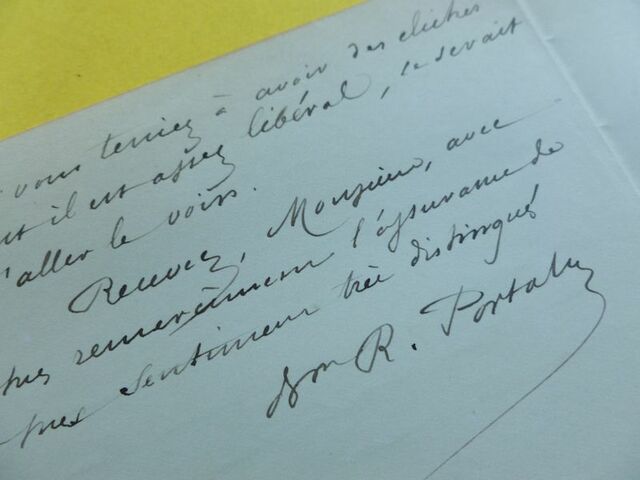 vous teniez à avoir des clichés
il est assez libéral, ce serait
d'aller le voir.
Recevez, Monsieur, avec
mes remerciements l'assurance de
mes sentiments très distingués
R. Portal